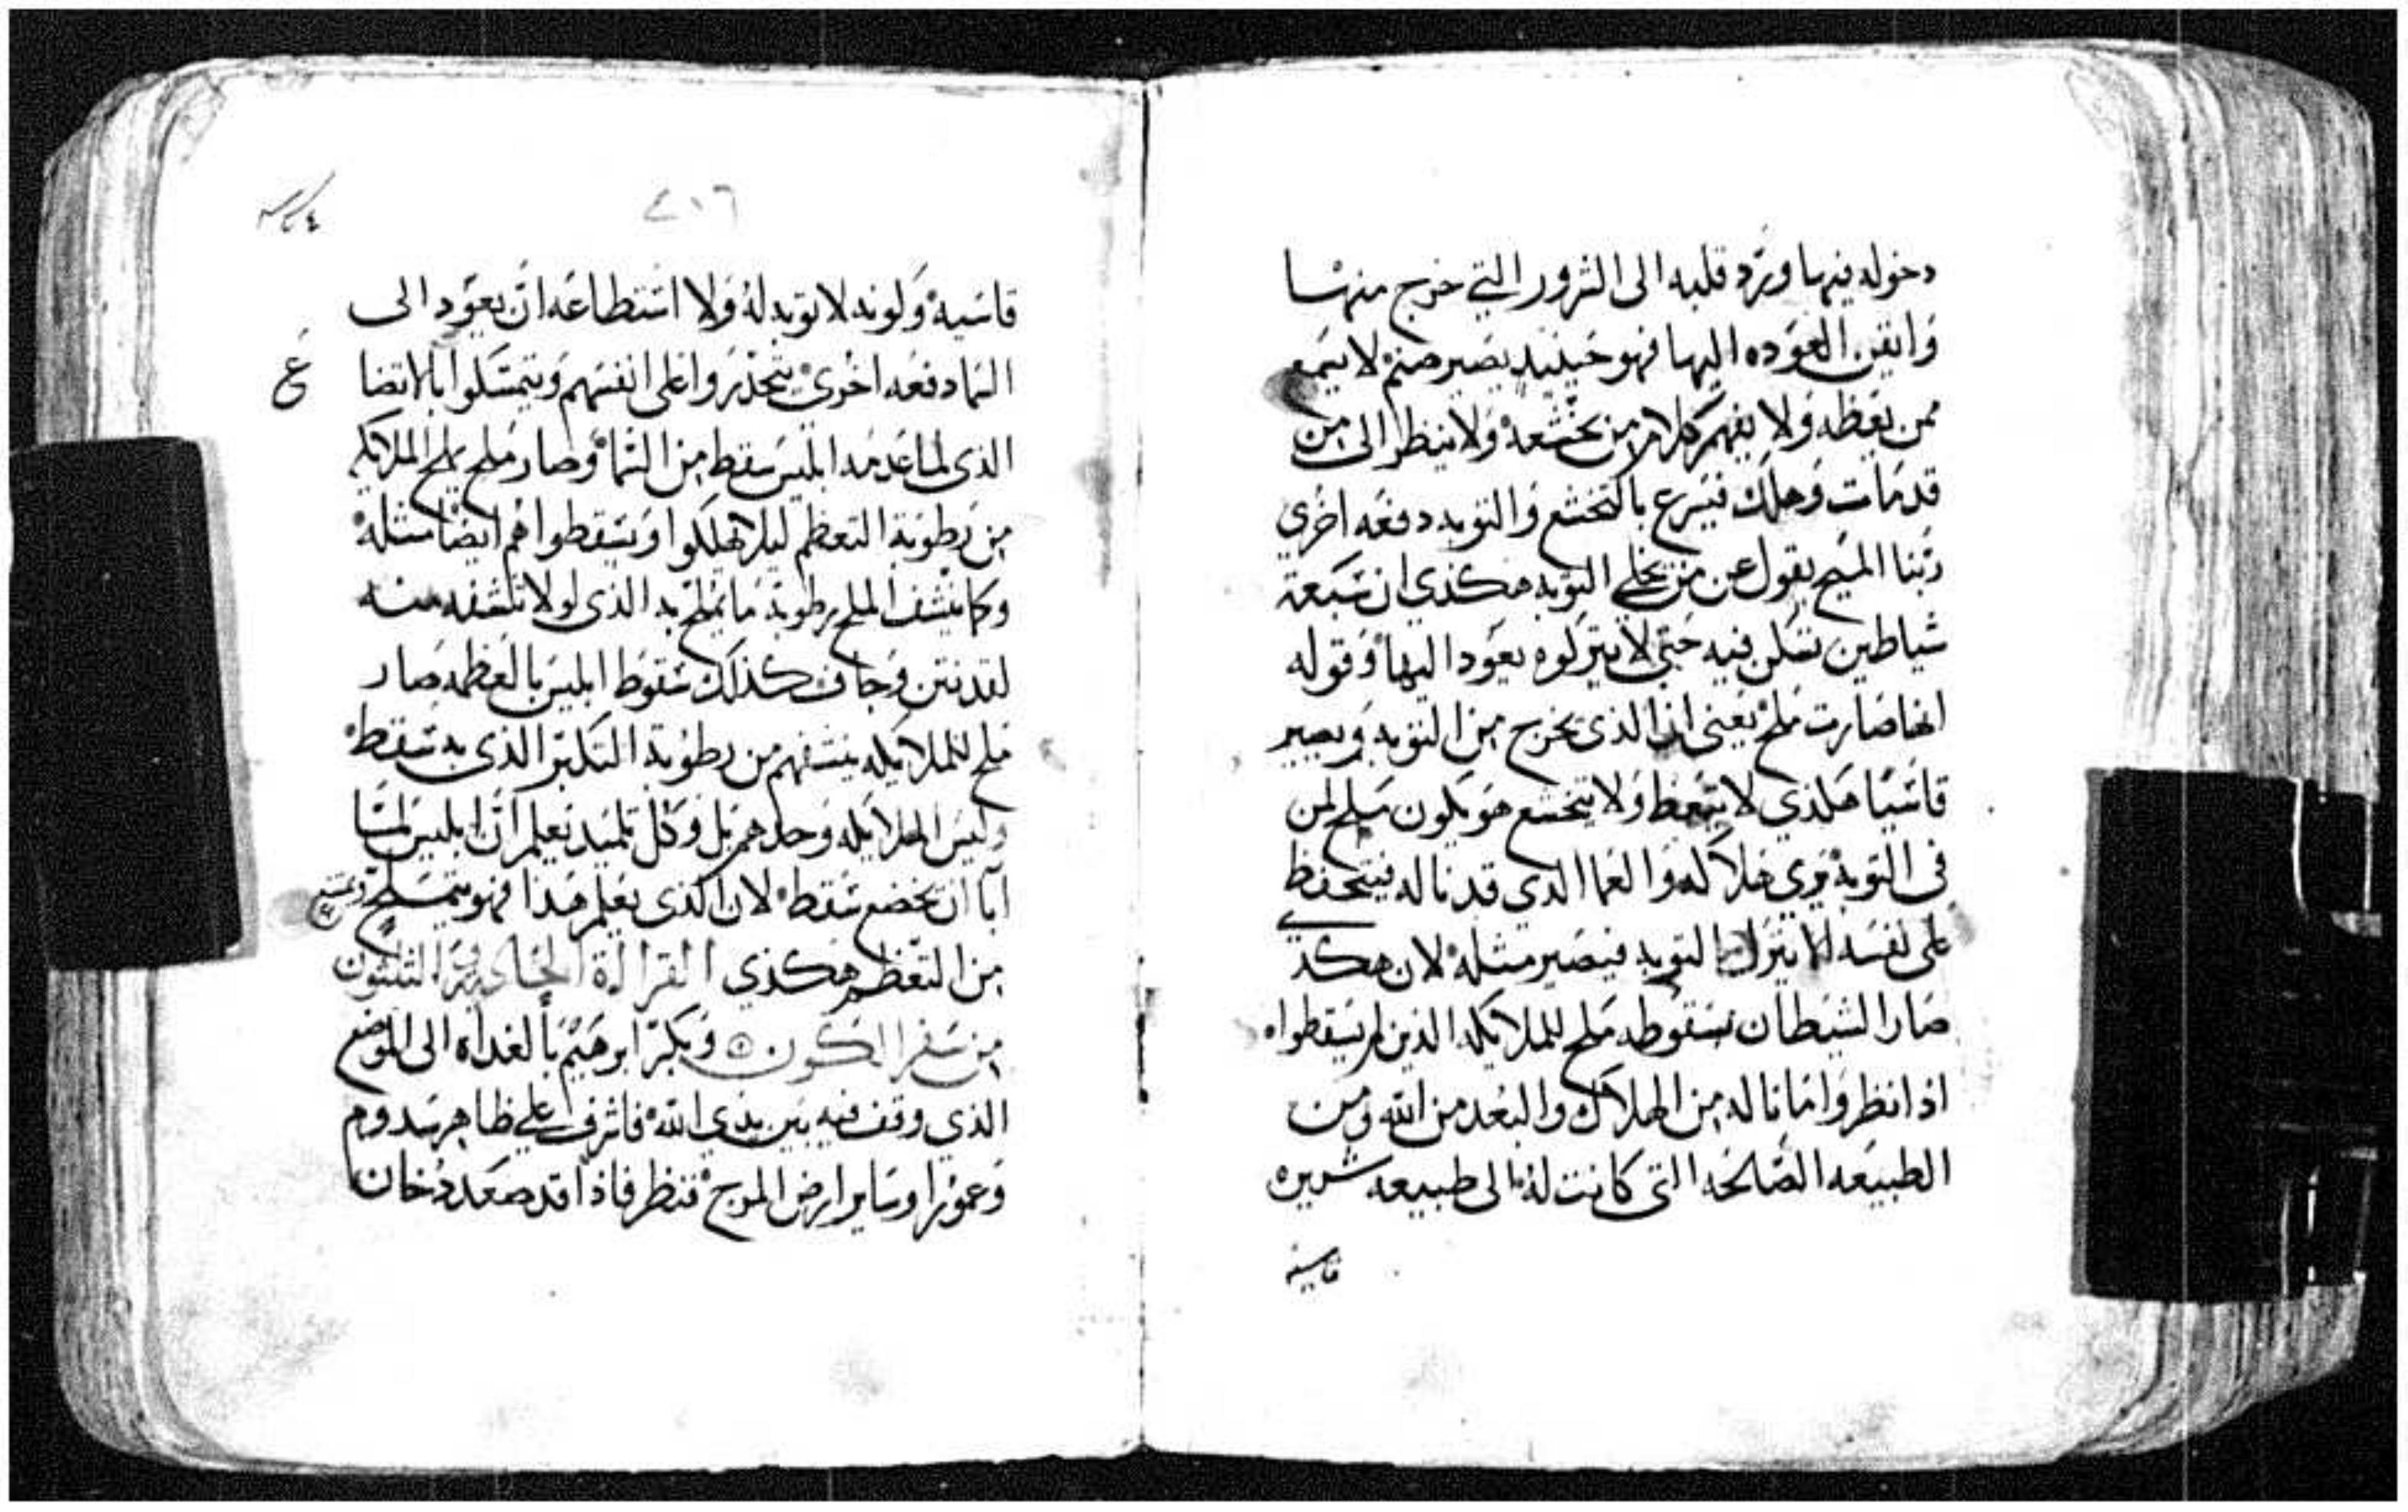 دخوله فيها ويرد قلبه الى الشرور التي خرج منها
وايقن العوده اليها فهو حينيد يصير صنم لا يسمع
ممن يعظه ولا يفهم كلام من يخشعه ولا ينظر الى من
قد مات وهلك فيسرع بالتخشع والتوبه دفعه اخري
ربنا المسيح يقول عن من يخلي التوبه هكذي ان سبعة
شياطين تسكن فيه حتى لا يتركوه يعود اليها وقوله
انها صارت ملح يعني ان الذي يخرج من التوبه ويصير
قاسيا هكذي لا يتعظ ولا يتخشع هو يكون ملح لمن
في التوبه يري هلاكه والعما الذي قد ناله فيتحفظ
على نفسه لا يترك التوبه فيصير مثله لان هكذي
صار الشيطان بسقوطه ملح للملايكه الذين لم يسقطوا
اذا نظروا ما ناله من الهلاك والبعد من الله ومن
الطبيعه الصالحه التي كانت له الى طبيعه شريره
قاسيه
٤١٦
قاسيه ولونه لا توبه له ولا استطاعه ان يعود الى
السما دفعه اخري يتحذروا على انفسهم ويتمسكوا بالاتضا
ع
الذي لما عدمه ابليس سقط من السما وصار ملح يملح الملايكه
من رطوبة التعظم ليلا يهلكوا ويسقطوا هم ايضا مثله
وكما ينشف الملح رطوبة ما يملح به الذي لولا تنشفه منه
لقد نتن وجاف كذلك سقوط ابليس بالعظمه صار
ملح للملايكه ينشفهم من رطوبة التكبر الذي به سقط
وليس الملايكه وحدهم بل وكل تلميد يعلم ان ابليس لما
ابا ان يخضع سقط لان الذي يعلم هذا فهو يتملح
من التعظم هكذي القراة الحادية والثلثون
من سفر الكون وبكر ابرهيم بالغداه الى الموضع
الذي وقف فيه بين يدي الله فاشرف على ظاهر سدوم
وعمورا وساير ارض المرج فنظر فاذا قد صعد دخان